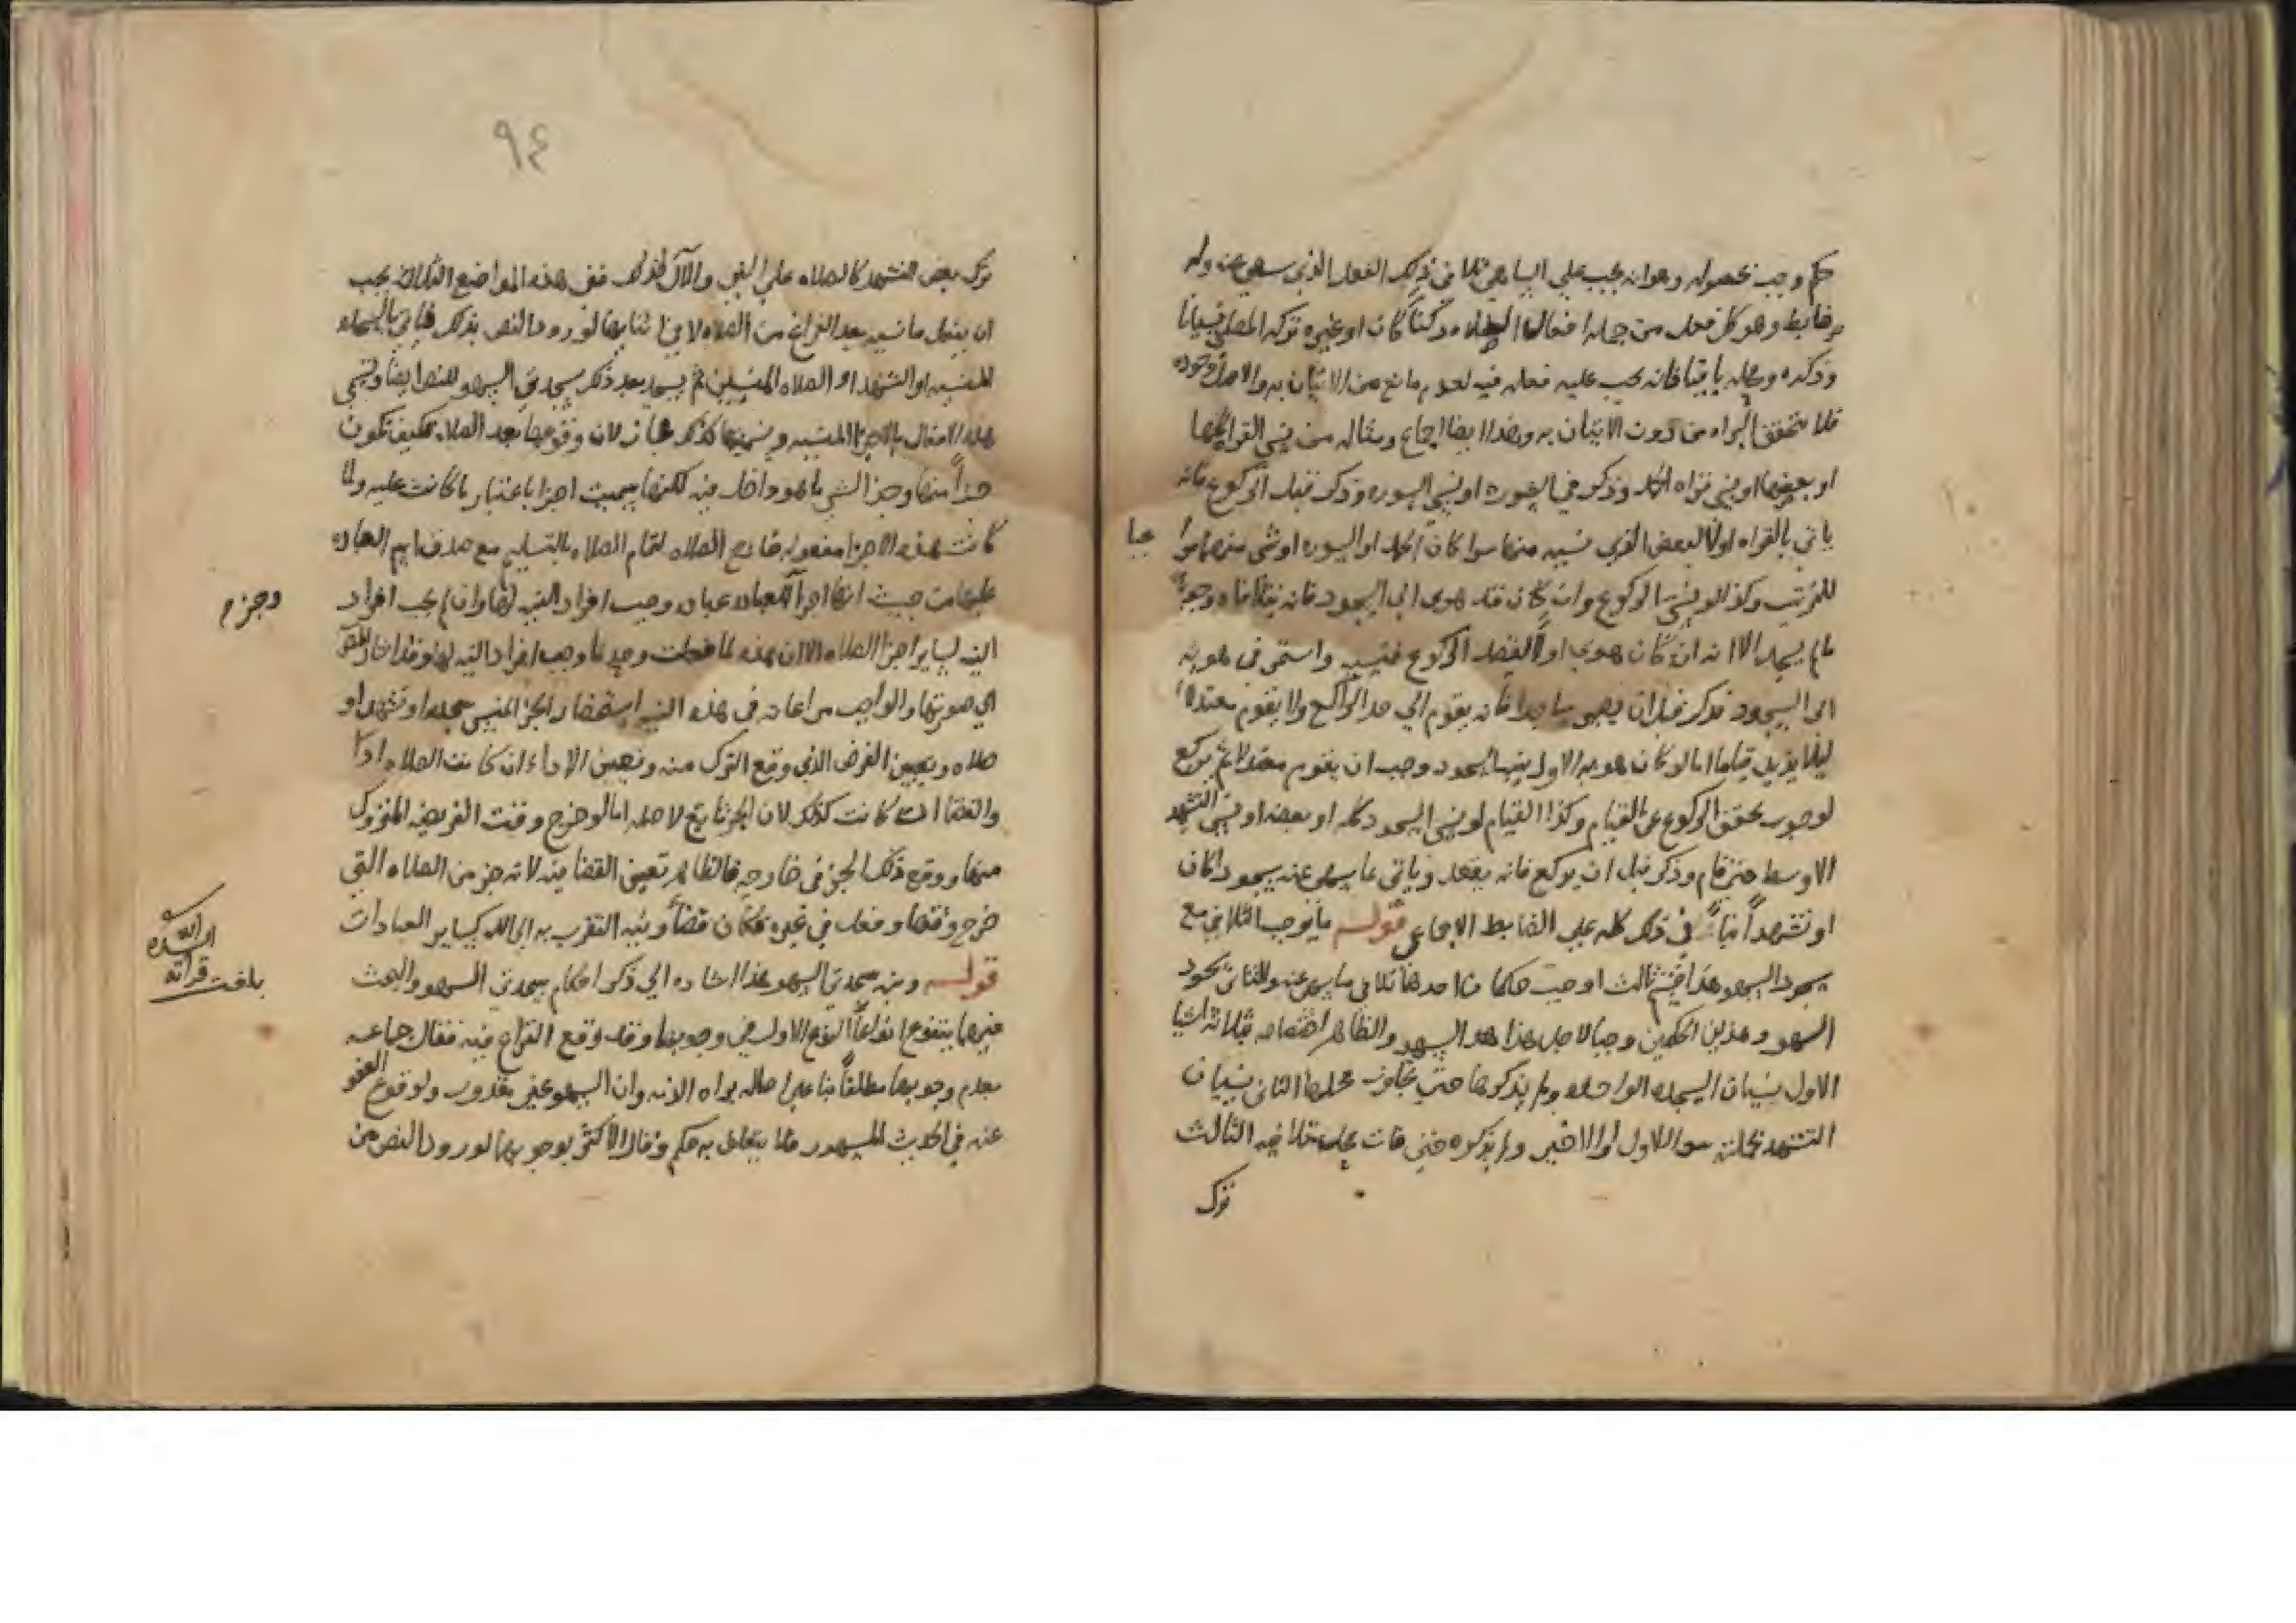 حكم وجب بحصوله وهو انه يجب علي الساهي تلافي ذلك الفعل الذي سهي عنه وله
ضابط وهو كل فعل من جملة افعال الصلاه ركناً كان او غيره تركه المصلي نسياناً
وذكره ومحله باقيا فانه يجب عليه فعله فيه لعدم مانع من الاتيان به والاصل وجوده
فلا تتحقق البراه من دون الاتيان به وهذا ايضا اجماع ومثاله من نسي القراه كلها
او بعضها او نسي قراه الحمد وذكر في السوره او نسي السوره وذكر قبل الركوع فانه
ياتي بالقراه اولا البعض الذي نسيه منها سوا كان الحمد او السوره او شي منهما
للترتيب وكذا لو نسي الركوع وان كان قد هوى الي السجود فانه يتلافاه وجوباً
ما لم يسجد الا انه ان كان هوي اولا لقصد الركوع فنسيه واستمر في هويه
الي السجود فذكر قبل ان يصير ساجدا فانه يقوم الي حد الراكع ولا يقوم معتدلا
ليلا يزيد قياما اما لو كان هويه الاول بنية السجود وجب ان يقوم معتدلا ثم يركع
لوجوب تحقق الركوع عن القيام وكذا القيام لو نسي السجود كله او بعضه او نسي التشهد
الاوسط حتي قام وذكر قبل ان يركع فانه يقعد وياتي بما سهي عنه سجودا كان
او تشهداً بناً في ذلك كله علي الضابط الاجماعي قوله ما يوجب التلافي مع
سجود السهو هذا قسم ثالث اوجب حكما احدها تلافي ما سهي عنه والثاني سجود
السهو وهذين الحكمين وجبا لاجل هذا السهو والظاهر اختصاصه بثلاثة اشيا
الاول نسيان السجده الواحده ولم يذكرها حتي تجاوز محلها الثاني نسيان
التشهد بجملته سوا الاول او الاخير ولم يذكره حتي فات محل تلافيه الثالث
ترك
٩٤
ترك بعض التشهد كالصلاه علي النبي والال كذلك ففي هذه المواضع الثلاث يجب
ان يفعل ما نسيه بعد الفراغ من الصلاه لا في اثنايها لورود النص بذلك فياتي بالسجده
المنسيه او التشهد او الصلاه المنسيين ثم يسجد بعد ذلك سجدتي السهو للنص ايضا وتسمي
هذه الافعال بالاجزا المنسيه وتسميتها كذلك مجاز لان وقوعها بعد الصلاه فكيف تكون
جزاً منها وجز الشي ما هو داخل فيه لكنها سميت اجزا باعتبار ما كانت عليه ولما
كانت هذه الاجزا مفعوله خارج الصلاه لتمام الصلاه بالتسليم مع صدق اسم العباده
عليها من حيث انها اجزا لعباده وجب افراد النيه لها وان لم يجب افراد
النيه لساير اجزا الصلاه الا ان هذه لما فعلت وحدها وجب افراد النيه لها وقد اشار المص
الي صورتها والواجب مراعاته في هذه النيه استحضار الجز المنسي سجده او تشهد او
صلاه وتعيين الفرض الذي وقع الترك منه وتعيين الادا ان كانت الصلاه ادا
والقضا ان كانت كذلك لان الجز تابع لاصله اما لو خرج وقت الفريضه المتروك
منها ووقع ذلك الجز في خارجه فالظاهر تعين القضا فيه لانه جز من الصلاه التي
خرج وقتها وفعل في غيره فكان قضاً ونية التقرب به الي الله كساير العبادات
قوله ومنه سجدتي السهو هذا اشاره الي ذكر احكام سجدتي السهو والبحث
فيها يتنوع انواعاً النوع الاول في وجوبها وقد وقع النزاع فيه فقال جماعه
بعدم وجوبها مطلقاً بنا علي اصالة براه الذمه وان السهو غير مقدور ولوقوع العفو
عنه في الحديث المشهور فلا يتعلق به حكم وقال الاكثر بوجوبها لورود النص من
وجزم
بلغت قراته